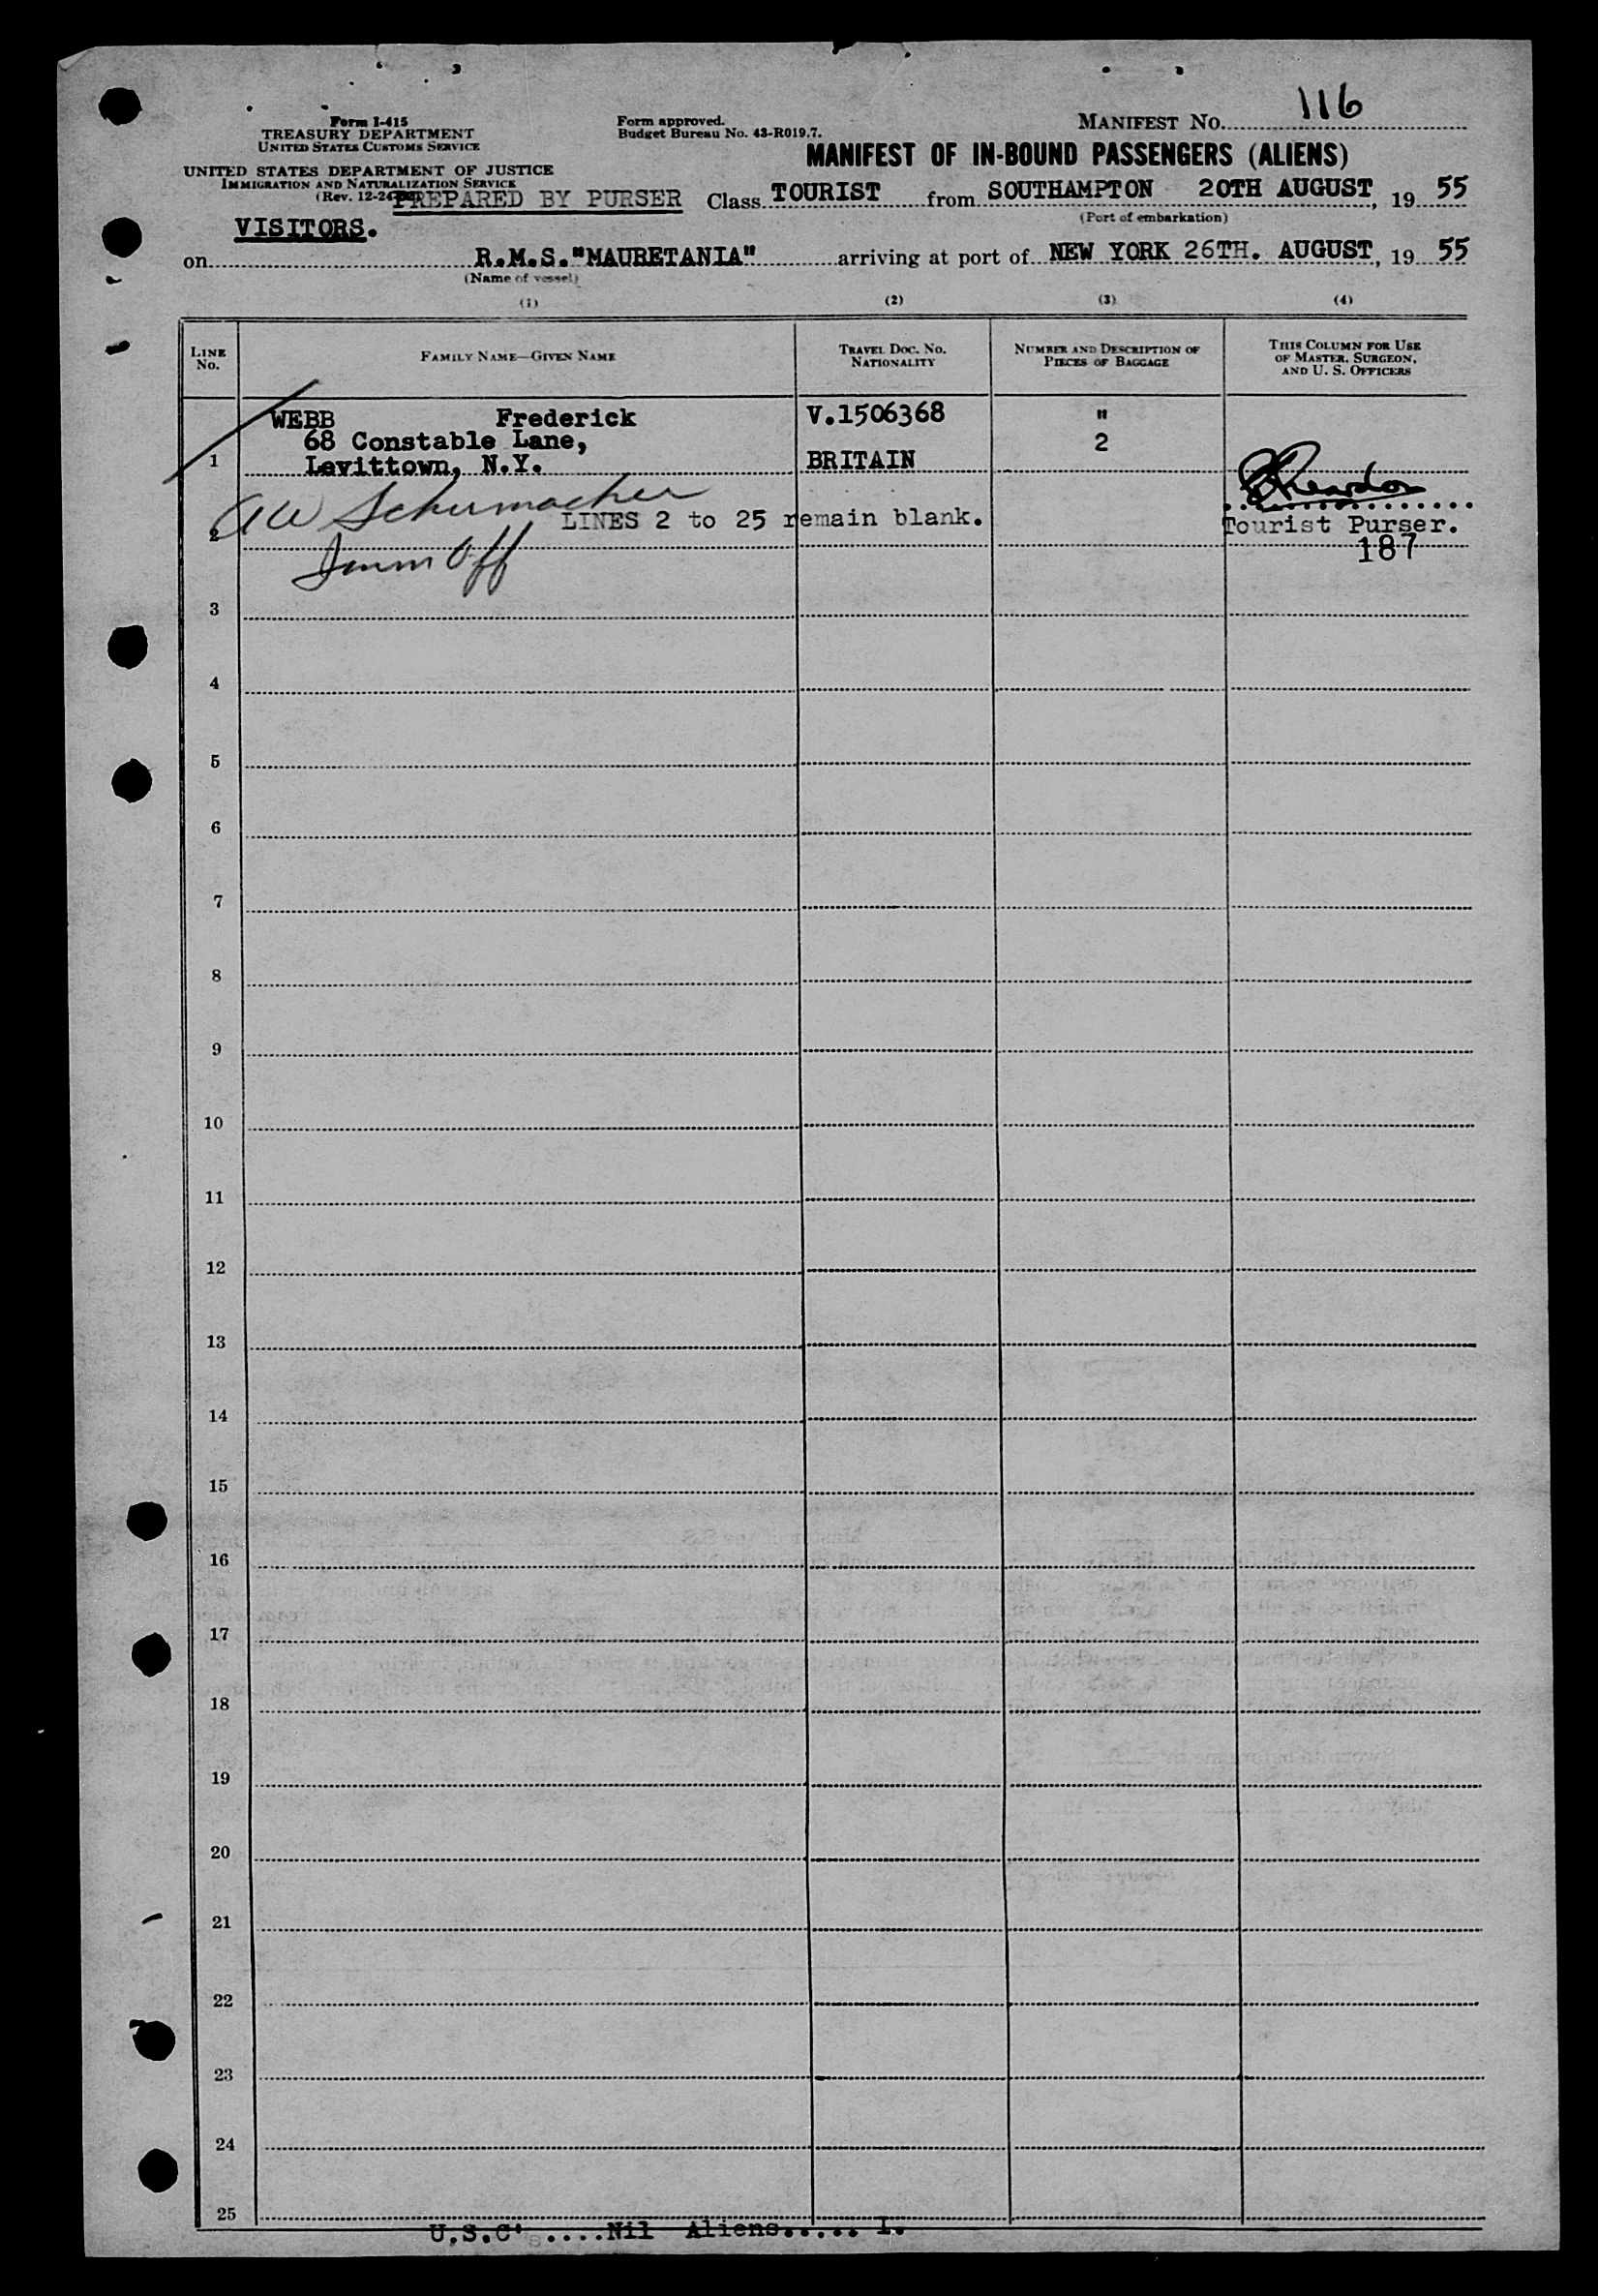 MANIFEST NO. 116
Form I-415
TREASURY DEPARTMENT
UNITED STATES CUSTOMS SERVICE
Form approved.
Budget Bureau No. 43-R019.7.
UNITED STATES DEPARTMENT OF JUSTICE
IMMIGRATION AND NATURALIZATION SERVICE
(Rev. 12-24
MANIFEST OF IN-BOUND PASSENGERS (ALIENS)
PREPARED BY PURSER Class TOURIST from SOUTHAMPTON 20TH AUGUST, 19 55
(Port of embarkation)
VISITORS.
on R.M.S."MAURETANIA" arriving at port of NEW YORK 26TH. AUGUST, 19 55
(Name of vessel)
(1) (2) (3) (4)
LINE No. FAMILY NAME—GIVEN NAME TRAVEL DOC. NO. NATIONALITY NUMBER AND DESCRIPTION OF PIECES OF BAGGAGE THIS COLUMN FOR USE OF MASTER, SURGEON, AND U. S. OFFICERS
WEBB Frederick V.1506368 "
68 Constable Lane, 2
1 Levittown, N.Y. BRITAIN
AW Schumacher
LINES 2 to 25 remain blank. Tourist Purser.
2 187
Imm Off
3
4
5
6
7
8
9
10
11
12
13
14
15
16
17
18
19
20
21
22
23
24
25
U.S.C's....Nil Aliens..... 1.